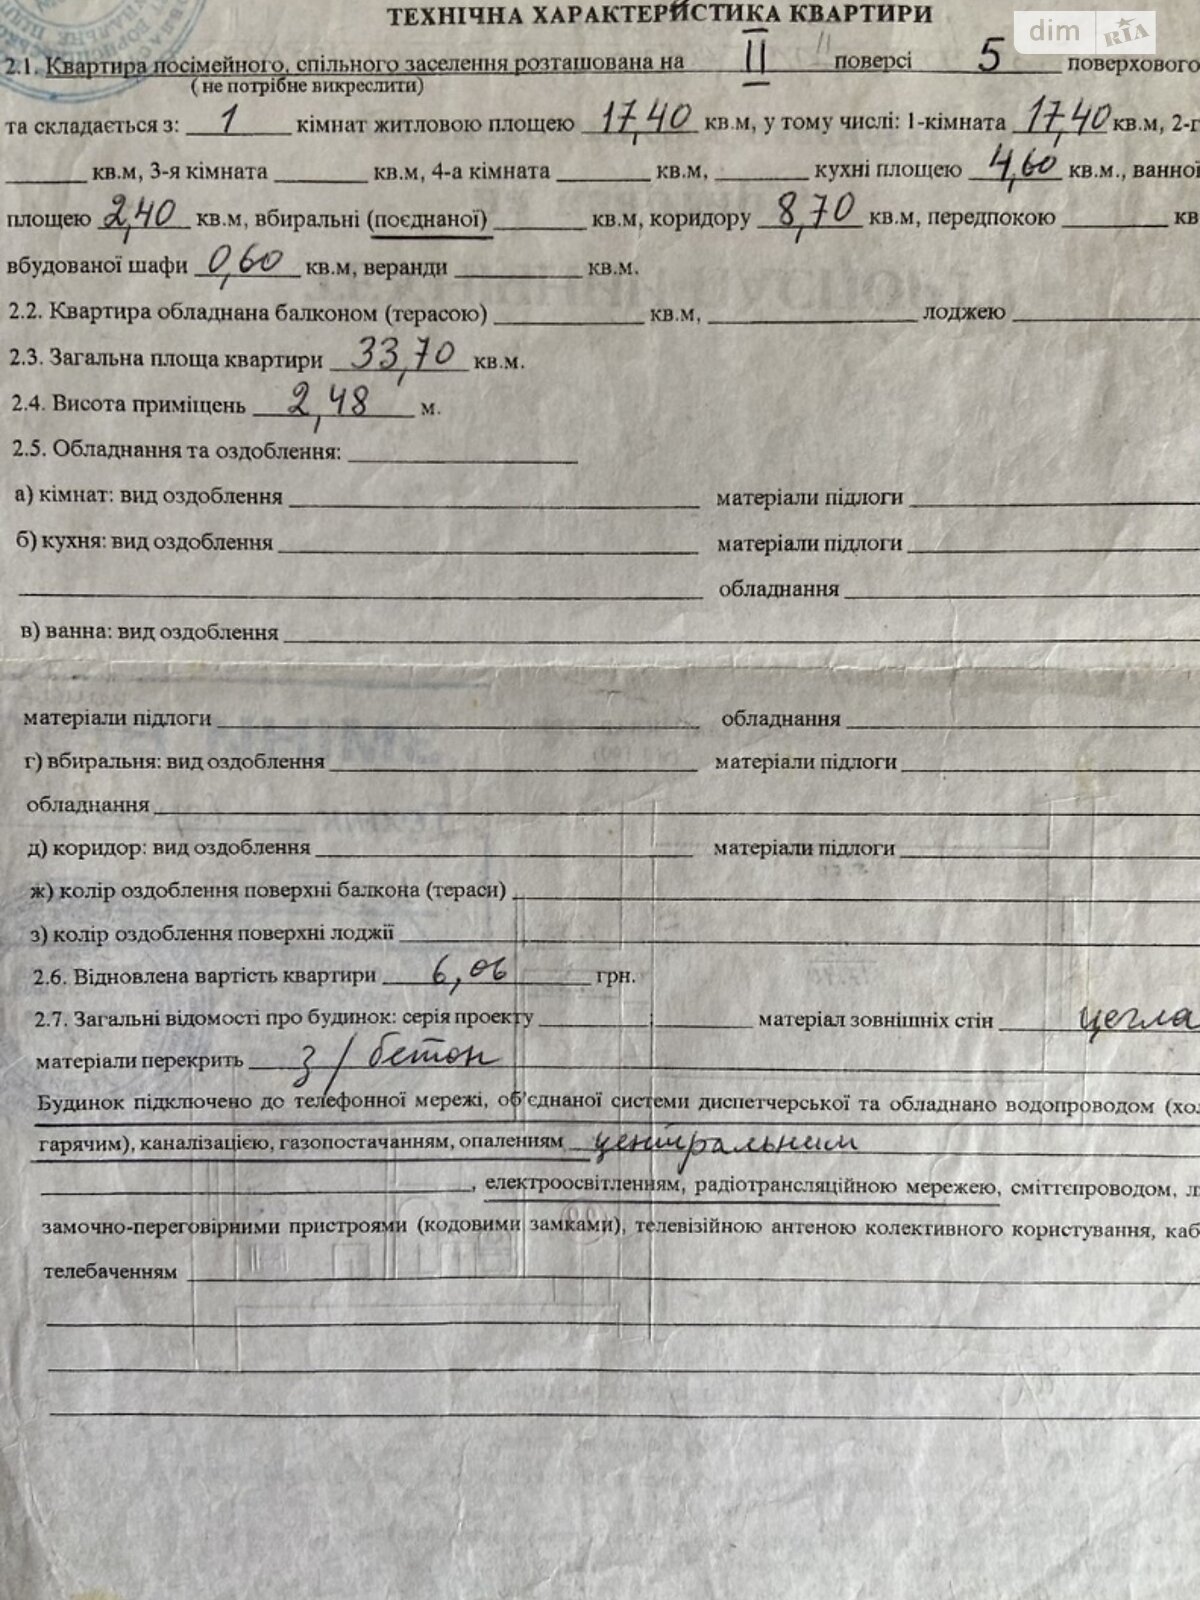 ТЕХНІЧНА ХАРАКТЕРИСТИКА КВАРТИРИ
dim RIA
2.1. Квартира посімейного, спільного заселення розташована на II поверсі 5 поверхового
( не потрібне викреслити)
та складається з: 1 кімнат житловою площею 17,40 кв.м, у тому числі: 1-кімната 17,40 кв.м, 2-г
кв.м, 3-я кімната кв.м, 4-а кімната кв.м, кухні площею 4,60 кв.м., ванної
площею 2,40 кв.м, вбиральні (поєднаної) кв.м, коридору 8,70 кв.м, передпокою кв
вбудованої шафи 0,60 кв.м, веранди кв.м.
2.2. Квартира обладнана балконом (терасою) кв.м, лоджею
2.3. Загальна площа квартири 33,70 кв.м.
2.4. Висота приміщень 2,48 м.
2.5. Обладнання та оздоблення:
а) кімнат: вид оздоблення матеріали підлоги
б) кухня: вид оздоблення матеріали підлоги
обладнання
в) ванна: вид оздоблення
матеріали підлоги обладнання
г) вбиральня: вид оздоблення матеріали підлоги
обладнання
д) коридор: вид оздоблення матеріали підлоги
ж) колір оздоблення поверхні балкона (тераси)
з) колір оздоблення поверхні лоджії
2.6. Відновлена вартість квартири 6,06 грн.
2.7. Загальні відомості про будинок: серія проекту матеріал зовнішніх стін цегла
матеріали перекрить з/бетон
Будинок підключено до телефонної мережі, об'єднаної системи диспетчерської та обладнано водопроводом (хол
гарячим), каналізацією, газопостачанням, опаленням центральним
, електроосвітленням, радіотрансляційною мережею, сміттєпроводом, л
замочно-переговірними пристроями (кодовими замками), телевізійною антеною колективного користування, каб
телебаченням